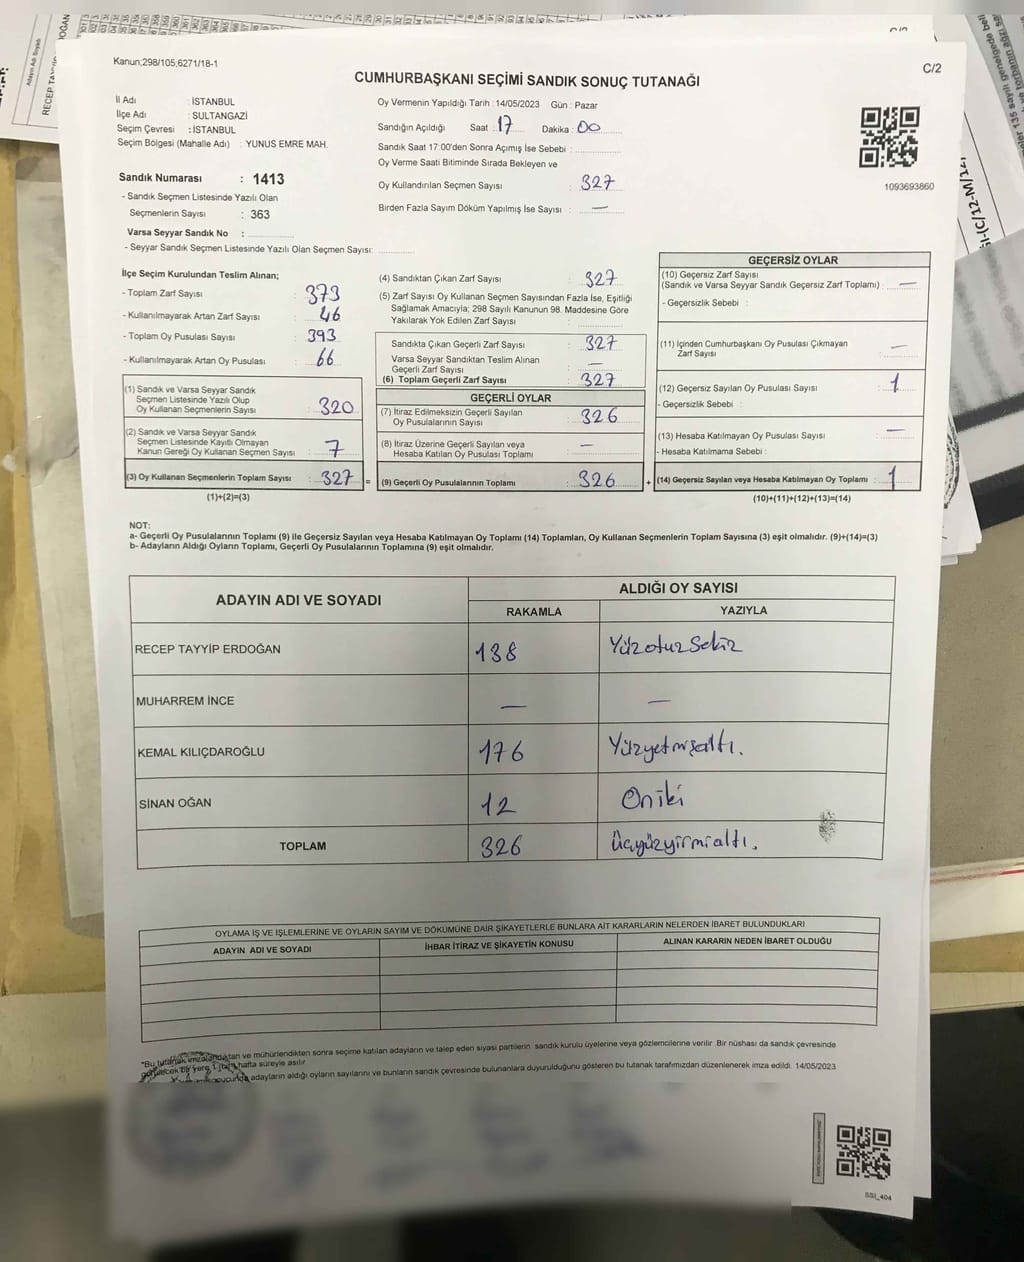 Kanun;298/105;6271/18-1
C/2
CUMHURBAŞKANI SEÇİMİ SANDIK SONUÇ TUTANAĞI
İl Adı : İSTANBUL
İlçe Adı : SULTANGAZİ
Seçim Çevresi : İSTANBUL
Seçim Bölgesi (Mahalle Adı) : YUNUS EMRE MAH.
Sandık Numarası : 1413
- Sandık Seçmen Listesinde Yazılı Olan
Seçmenlerin Sayısı : 363
Varsa Seyyar Sandık No :
- Seyyar Sandık Seçmen Listesinde Yazılı Olan Seçmen Sayısı:
Oy Vermenin Yapıldığı Tarih : 14/05/2023 Gün : Pazar
Sandığın Açıldığı Saat : 17 Dakika : 00
Sandık Saat 17:00'den Sonra Açımış İse Sebebi :
Oy Verme Saati Bitiminde Sırada Bekleyen ve
Oy Kullandırılan Seçmen Sayısı : 327
Birden Fazla Sayım Döküm Yapılmış İse Sayısı : —
1093693860
İlçe Seçim Kurulundan Teslim Alınan;
- Toplam Zarf Sayısı : 373
- Kullanılmayarak Artan Zarf Sayısı : 46
- Toplam Oy Pusulası Sayısı : 393
- Kullanılmayarak Artan Oy Pusulası : 66
(1) Sandık ve Varsa Seyyar Sandık
Seçmen Listesinde Yazılı Olup
Oy Kullanan Seçmenlerin Sayısı : 320
(2) Sandık ve Varsa Seyyar Sandık
Seçmen Listesinde Kayıtlı Olmayan
Kanun Gereği Oy Kullanan Seçmen Sayısı : 7
(3) Oy Kullanan Seçmenlerin Toplam Sayısı : 327
(1)+(2)=(3)
(4) Sandıktan Çıkan Zarf Sayısı : 327
(5) Zarf Sayısı Oy Kullanan Seçmen Sayısından Fazla İse, Eşitliği
Sağlamak Amacıyla; 298 Sayılı Kanunun 98. Maddesine Göre
Yakılarak Yok Edilen Zarf Sayısı :
Sandıkta Çıkan Geçerli Zarf Sayısı : 327
Varsa Seyyar Sandıktan Teslim Alınan
Geçerli Zarf Sayısı : —
(6) Toplam Geçerli Zarf Sayısı : 327
GEÇERLİ OYLAR
(7) İtiraz Edilmeksizin Geçerli Sayılan
Oy Pusulalarının Sayısı : 326
(8) İtiraz Üzerine Geçerli Sayılan veya
Hesaba Katılan Oy Pusulası Toplamı : —
= (9) Geçerli Oy Pusulalarının Toplamı : 326
GEÇERSİZ OYLAR
(10) Geçersiz Zarf Sayısı
(Sandık ve Varsa Seyyar Sandık Geçersiz Zarf Toplamı) : —
- Geçersizlik Sebebi :
(11) İçinden Cumhurbaşkanı Oy Pusulası Çıkmayan
Zarf Sayısı : —
(12) Geçersiz Sayılan Oy Pusulası Sayısı : 1
- Geçersizlik Sebebi :
(13) Hesaba Katılmayan Oy Pusulası Sayısı : —
- Hesaba Katılmama Sebebi :
+ (14) Geçersiz Sayılan veya Hesaba Katılmayan Oy Toplamı : 1
(10)+(11)+(12)+(13)=(14)
NOT:
a- Geçerli Oy Pusulasının Toplamı (9) ile Geçersiz Sayılan veya Hesaba Katılmayan Oy Toplamı (14) Toplamları, Oy Kullanan Seçmenlerin Toplam Sayısına (3) eşit olmalıdır. (9)+(14)=(3)
b- Adayların Aldığı Oyların Toplamı, Geçerli Oy Pusulalarının Toplamına (9) eşit olmalıdır.
ADAYIN ADI VE SOYADI
ALDIĞI OY SAYISI
RAKAMLA YAZIYLA
RECEP TAYYİP ERDOĞAN 138 Yüzotuzsekiz
MUHARREM İNCE — —
KEMAL KILIÇDAROĞLU 176 Yüzyetmişaltı.
SİNAN OĞAN 12 Oniki
TOPLAM 326 Üçyüzyirmialtı.
OYLAMA İŞ VE İŞLEMLERİNE VE OYLARIN SAYIM VE DÖKÜMÜNE DAİR ŞİKAYETLERLE BUNLARA AİT KARARLARIN NELERDEN İBARET BULUNDUKLARI
ADAYIN ADI VE SOYADI İHBAR İTİRAZ VE ŞİKAYETİN KONUSU ALINAN KARARIN NEDEN İBARET OLDUĞU
*Bu tutanak imzalandıktan ve mühürlendikten sonra seçime katılan adayların ve talep eden siyasi partilerin sandık kurulu üyelerine veya gözlemcilerine verilir. Bir nüshası da sandık çevresinde
görülecek bir yere 1 (bir) hafta süreyle asılır
adayların aldığı oyların sayılarını ve bunların sandık çevresinde bulunanlara duyurulduğunu gösteren bu tutanak tarafımızdan düzenlenerek imza edildi. 14/05/2023
SSI_404